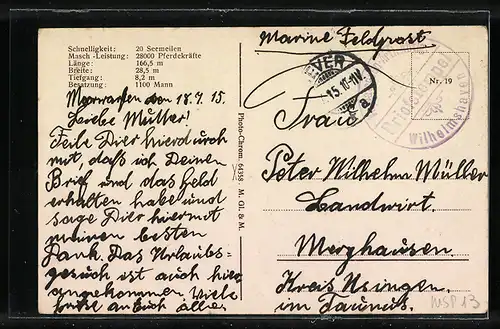 Schnelligkeit: 20 Seemeilen
Masch.-Leistung: 28000 Pferdekräfte
Länge: 166,5 m
Breite: 28,5 m
Tiefgang: 8,2 m
Besatzung: 1100 Mann
den 18.7.15.
Liebe Mutter!
Teile Dier hierdurch
mit, daß ich Deinen
Brief und das Geld
erhalten habe und
sage Dier hiermit
meinen besten
Dank. Das Urlaubs=
gesuch ist auch hier
angekommen. Viele
Grüße an Euch alle
Photo-Chrom. 64358. M. Gl. & M.
Marine Feldpost
Nr. 19
Wilhelmshaven
Frau
Peter Wilhelm Müller
Landwirt.
Merzhausen.
Kreis Usingen.
im Taunus.
MSP 13